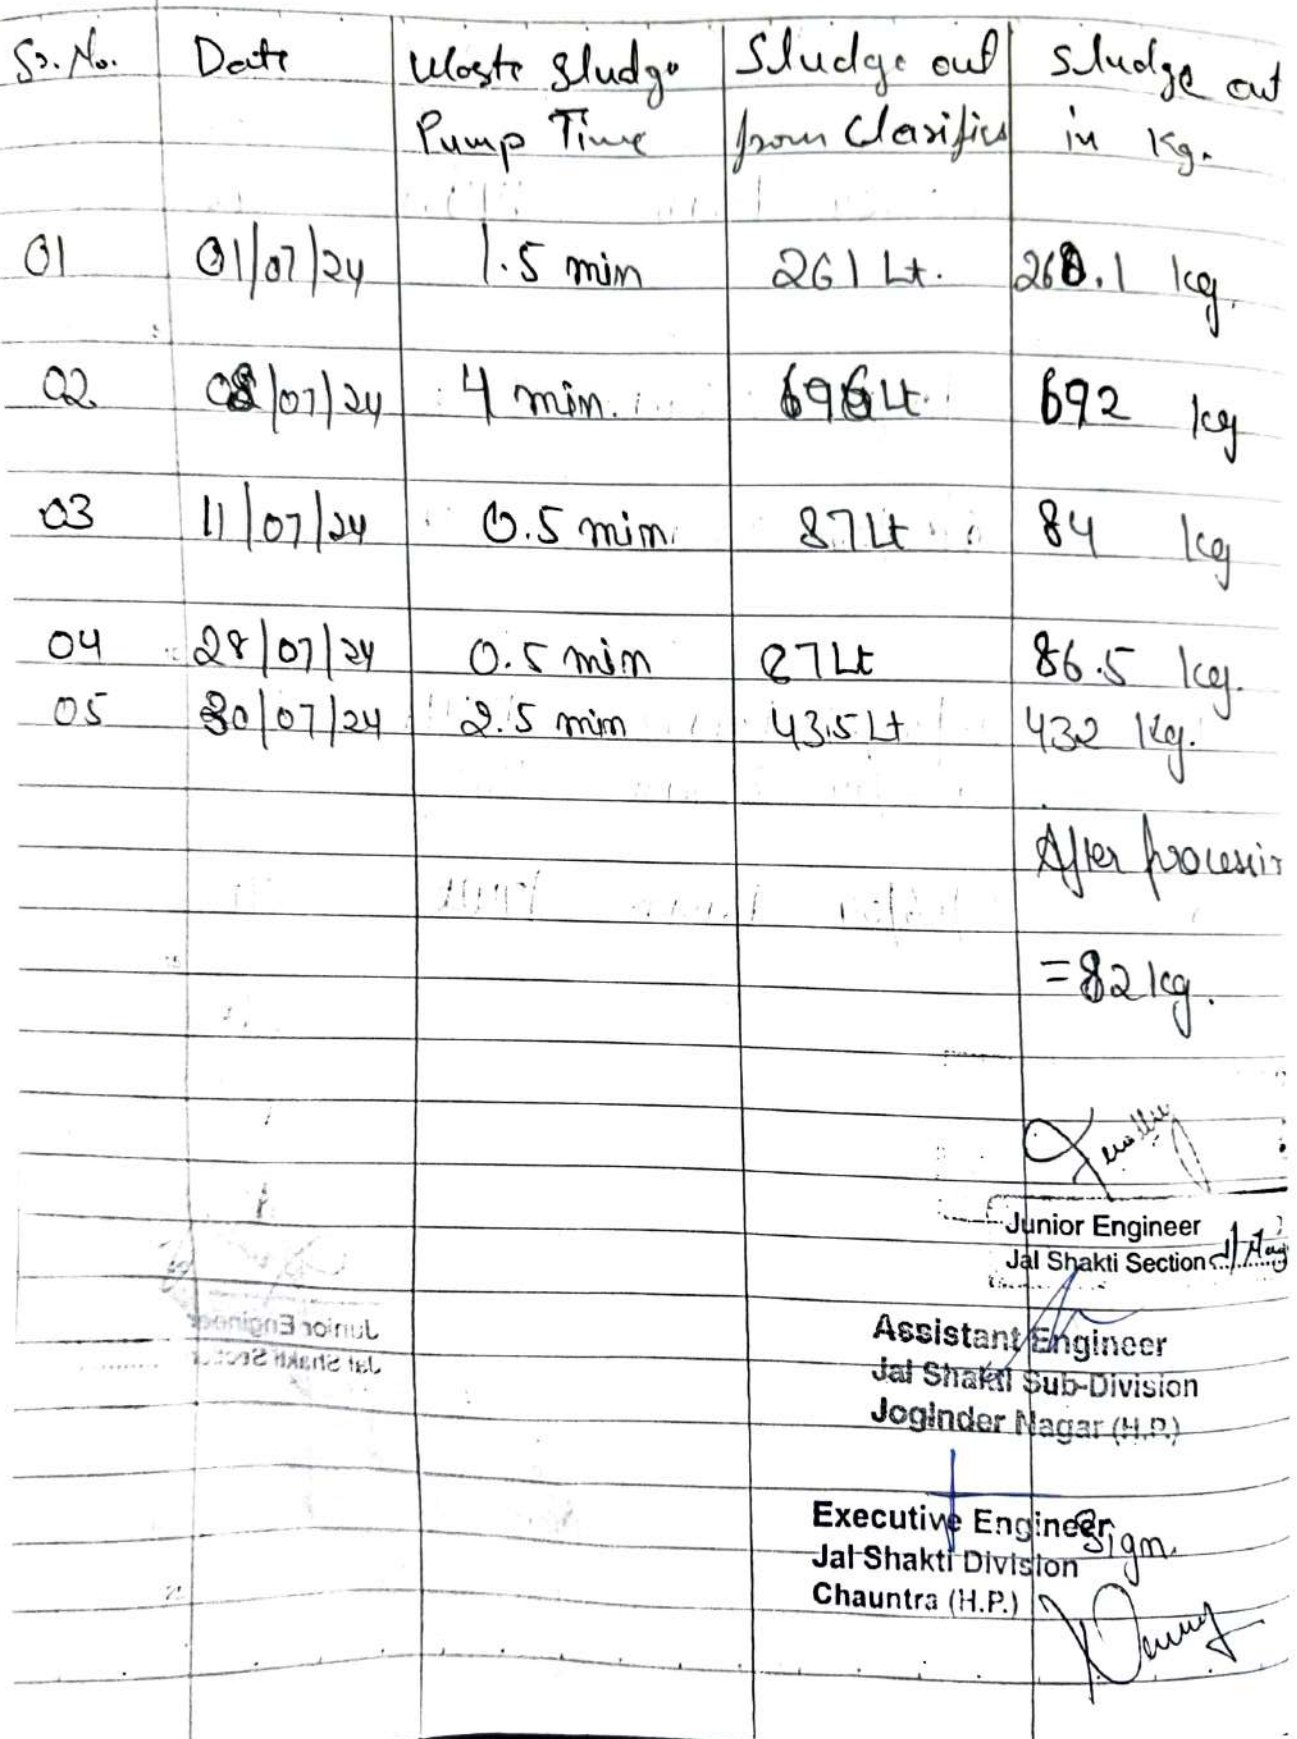 Sr. No. Date Waste Sludge Sludge out Sludge out
Pump Time from Clarifier in Kg.
01 01/07/24 1.5 min 261 Lt. 260.1 kg.
02 08/07/24 4 min. 696 Lt. 692 kg
03 11/07/24 0.5 min. 87 Lt 84 kg
04 28/07/24 0.5 min 87 Lt 86.5 kg.
05 30/07/24 2.5 min 435 Lt 432 Kg.
After processin
= 82 kg.
Junior Engineer
Jal Shakti Section
Assistant Engineer
Jal Shakti Sub-Division
Joginder Nagar (H.P.)
Executive Engineer
Sign.
Jal Shakti Division
Chauntra (H.P.)